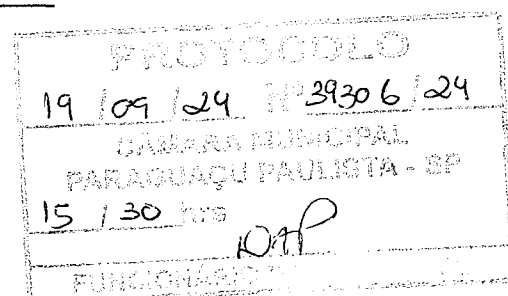 PROTOCOLO
19 / 09 / 24 Nº 39306 / 24
CÂMARA MUNICIPAL
PARAGUAÇU PAULISTA - SP
15 / 30 hrs
FUNCIONÁRIO